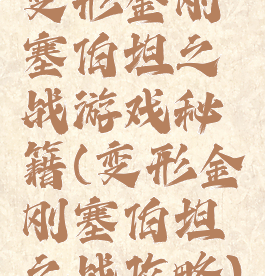 变形金刚
塞伯坦之
战游戏秘
籍(变形金
刚塞伯坦
之战攻略)